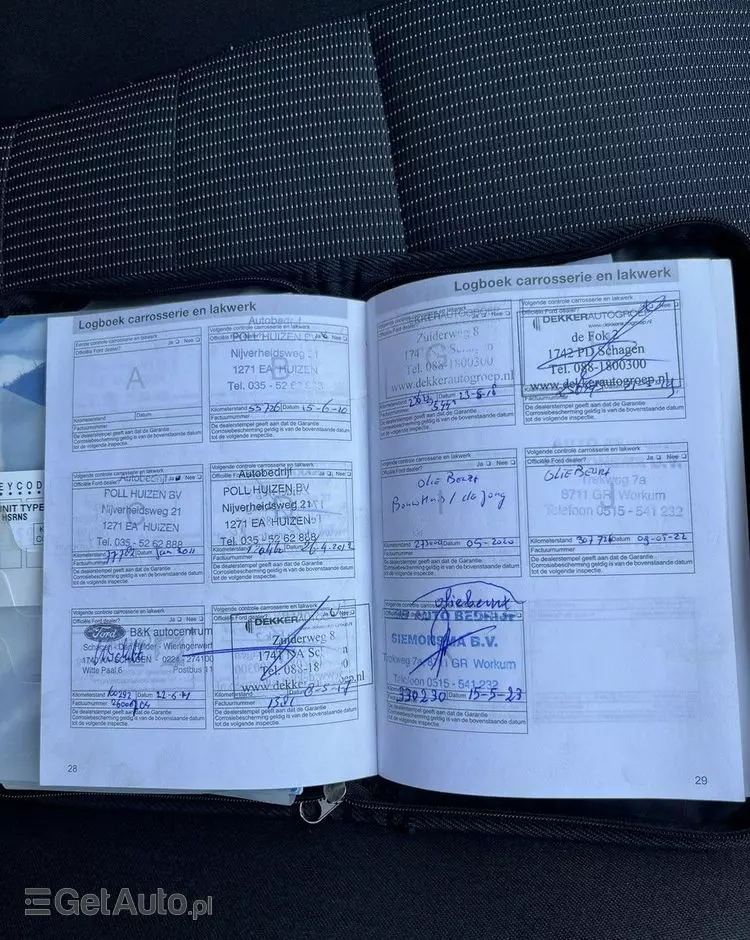 Logboek carrosserie en lakwerk
Eerste controle carrosserie en lakwerk
Officiële Ford dealer? Ja Nee
A
Kilometerstand Datum
Factuurnummer
De dealerstempel geeft aan dat de Garantie
Corrosiebescherming geldig is van de bovenstaande datum
tot de volgende inspectie.
Volgende controle carrosserie en lakwerk
Autobedrijf
POLL HUIZEN BV
Nijverheidsweg 21
1271 EA HUIZEN
Tel. 035 - 52 62 888
Kilometerstand 55736 Datum 15-6-10
Factuurnummer
De dealerstempel geeft aan dat de Garantie
Corrosiebescherming geldig is van de bovenstaande datum
tot de volgende inspectie.
Volgende controle carrosserie en lakwerk
Officiële Ford dealer? Ja Nee
Autobedrijf
POLL HUIZEN BV
Nijverheidsweg 21
1271 EA HUIZEN
Tel. 035 - 52 62 888
Kilometerstand Datum 2011
Factuurnummer
De dealerstempel geeft aan dat de Garantie
Corrosiebescherming geldig is van de bovenstaande datum
tot de volgende inspectie.
Volgende controle carrosserie en lakwerk
Autobedrijf
POLL HUIZEN BV
Nijverheidsweg 21
1271 EA HUIZEN
Tel. 035 - 52 62 888
Kilometerstand Datum 26-4-2012
Factuurnummer
De dealerstempel geeft aan dat de Garantie
Corrosiebescherming geldig is van de bovenstaande datum
tot de volgende inspectie.
Volgende controle carrosserie en lakwerk
Officiële Ford dealer? Ja Nee
Ford B&K autocentrum
Schagen - Den Helder - Wieringerwerf
SCHAGEN 0224 - 274100
Witte Paal 6 Postbus 11
Kilometerstand Datum
Factuurnummer
De dealerstempel geeft aan dat de Garantie
Corrosiebescherming geldig is van de bovenstaande datum
tot de volgende inspectie.
Volgende controle carrosserie en lakwerk
Officiële Ford dealer? Ja Nee
DEKKER
Zuiderweg 8
Tel. 088-18
www.dekkerautogroep.nl
Kilometerstand Datum
Factuurnummer
De dealerstempel geeft aan dat de Garantie
Corrosiebescherming geldig is van de bovenstaande datum
tot de volgende inspectie.
28
Logboek carrosserie en lakwerk
Volgende controle carrosserie en lakwerk
DEKKERAUTOGROEP
Zuiderweg 8
Schagen
Tel. 088-1800300
www.dekkerautogroep.nl
Kilometerstand Datum 23-5-18
Factuurnummer
De dealerstempel geeft aan dat de Garantie
Corrosiebescherming geldig is van de bovenstaande datum
tot de volgende inspectie.
Volgende controle carrosserie en lakwerk
DEKKERAUTOGROEP
www.dekkerautogroep.nl
de Fok 2
1742 PD Schagen
Tel. 088-1800300
www.dekkerautogroep.nl
Factuurnummer
De dealerstempel geeft aan dat de Garantie
Corrosiebescherming geldig is van de bovenstaande datum
tot de volgende inspectie.
Volgende controle carrosserie en lakwerk
Officiële Ford dealer? Ja Nee
OLIE BEURT
Bouwhuis / de Jong
I
Kilometerstand 273000 Datum 05-2020
Factuurnummer
De dealerstempel geeft aan dat de Garantie
Corrosiebescherming geldig is van de bovenstaande datum
tot de volgende inspectie.
Volgende controle carrosserie en lakwerk
Officiële Ford dealer? Ja Nee
OLIE BEURT
Trekweg 7a
8711 GR Workum
Telefoon 0515 - 541 232
Kilometerstand Datum 03-05-22
Factuurnummer
De dealerstempel geeft aan dat de Garantie
Corrosiebescherming geldig is van de bovenstaande datum
tot de volgende inspectie.
Volgende controle carrosserie en lakwerk
oliebeurt
AUTO BEDRIJF
SIEMONSMA B.V.
Trekweg 7a 8711 GR Workum
Telefoon 0515 - 541 232
Kilometerstand 330230 Datum 15-5-23
Factuurnummer
De dealerstempel geeft aan dat de Garantie
Corrosiebescherming geldig is van de bovenstaande datum
tot de volgende inspectie.
29
GetAuto.pl